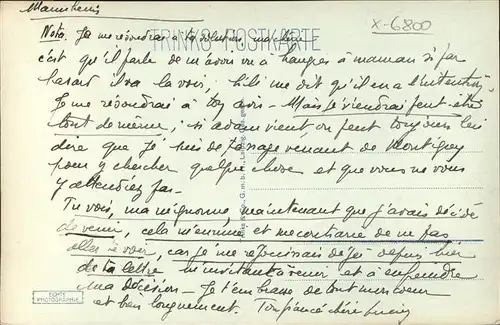 Mannheim
X-6800
TRINKS-POSTKARTE
Nota. Je me résoudrai à ta solution, ma chérie
c'est qu'il parle de m'avoir vu à Hanges à maman si par
hasard il va la voir. Lili me dit qu'il en a l'intention.
Je me résoudrai à ton avis - Mais je viendrai peut-être
tout de même; si adam vient on peut toujours lui
dire que je suis de passage venant de Montigny
pour y chercher quelque chose et que vous ne vous
y attendiez pas.
Tu vois, ma mignonne, maintenant que j'avais décidé
de venir, cela m'ennuie et me contrarie de ne pas
aller te voir, car je me réjouissais déjà depuis hier
de ta lettre m'invitant à venir et à enfreindre
ma décision - Je t'embrasse de tout mon coeur
et bien longuement. Ton fiancé chéri Lucien
ECHTE
PHOTOGRAPHIE